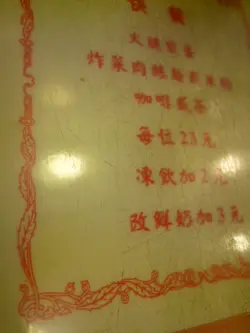 火腿煎蛋
炸菜肉絲麵或米粉
咖啡或茶
每位23元
凍飲加2元
改鮮奶加3元